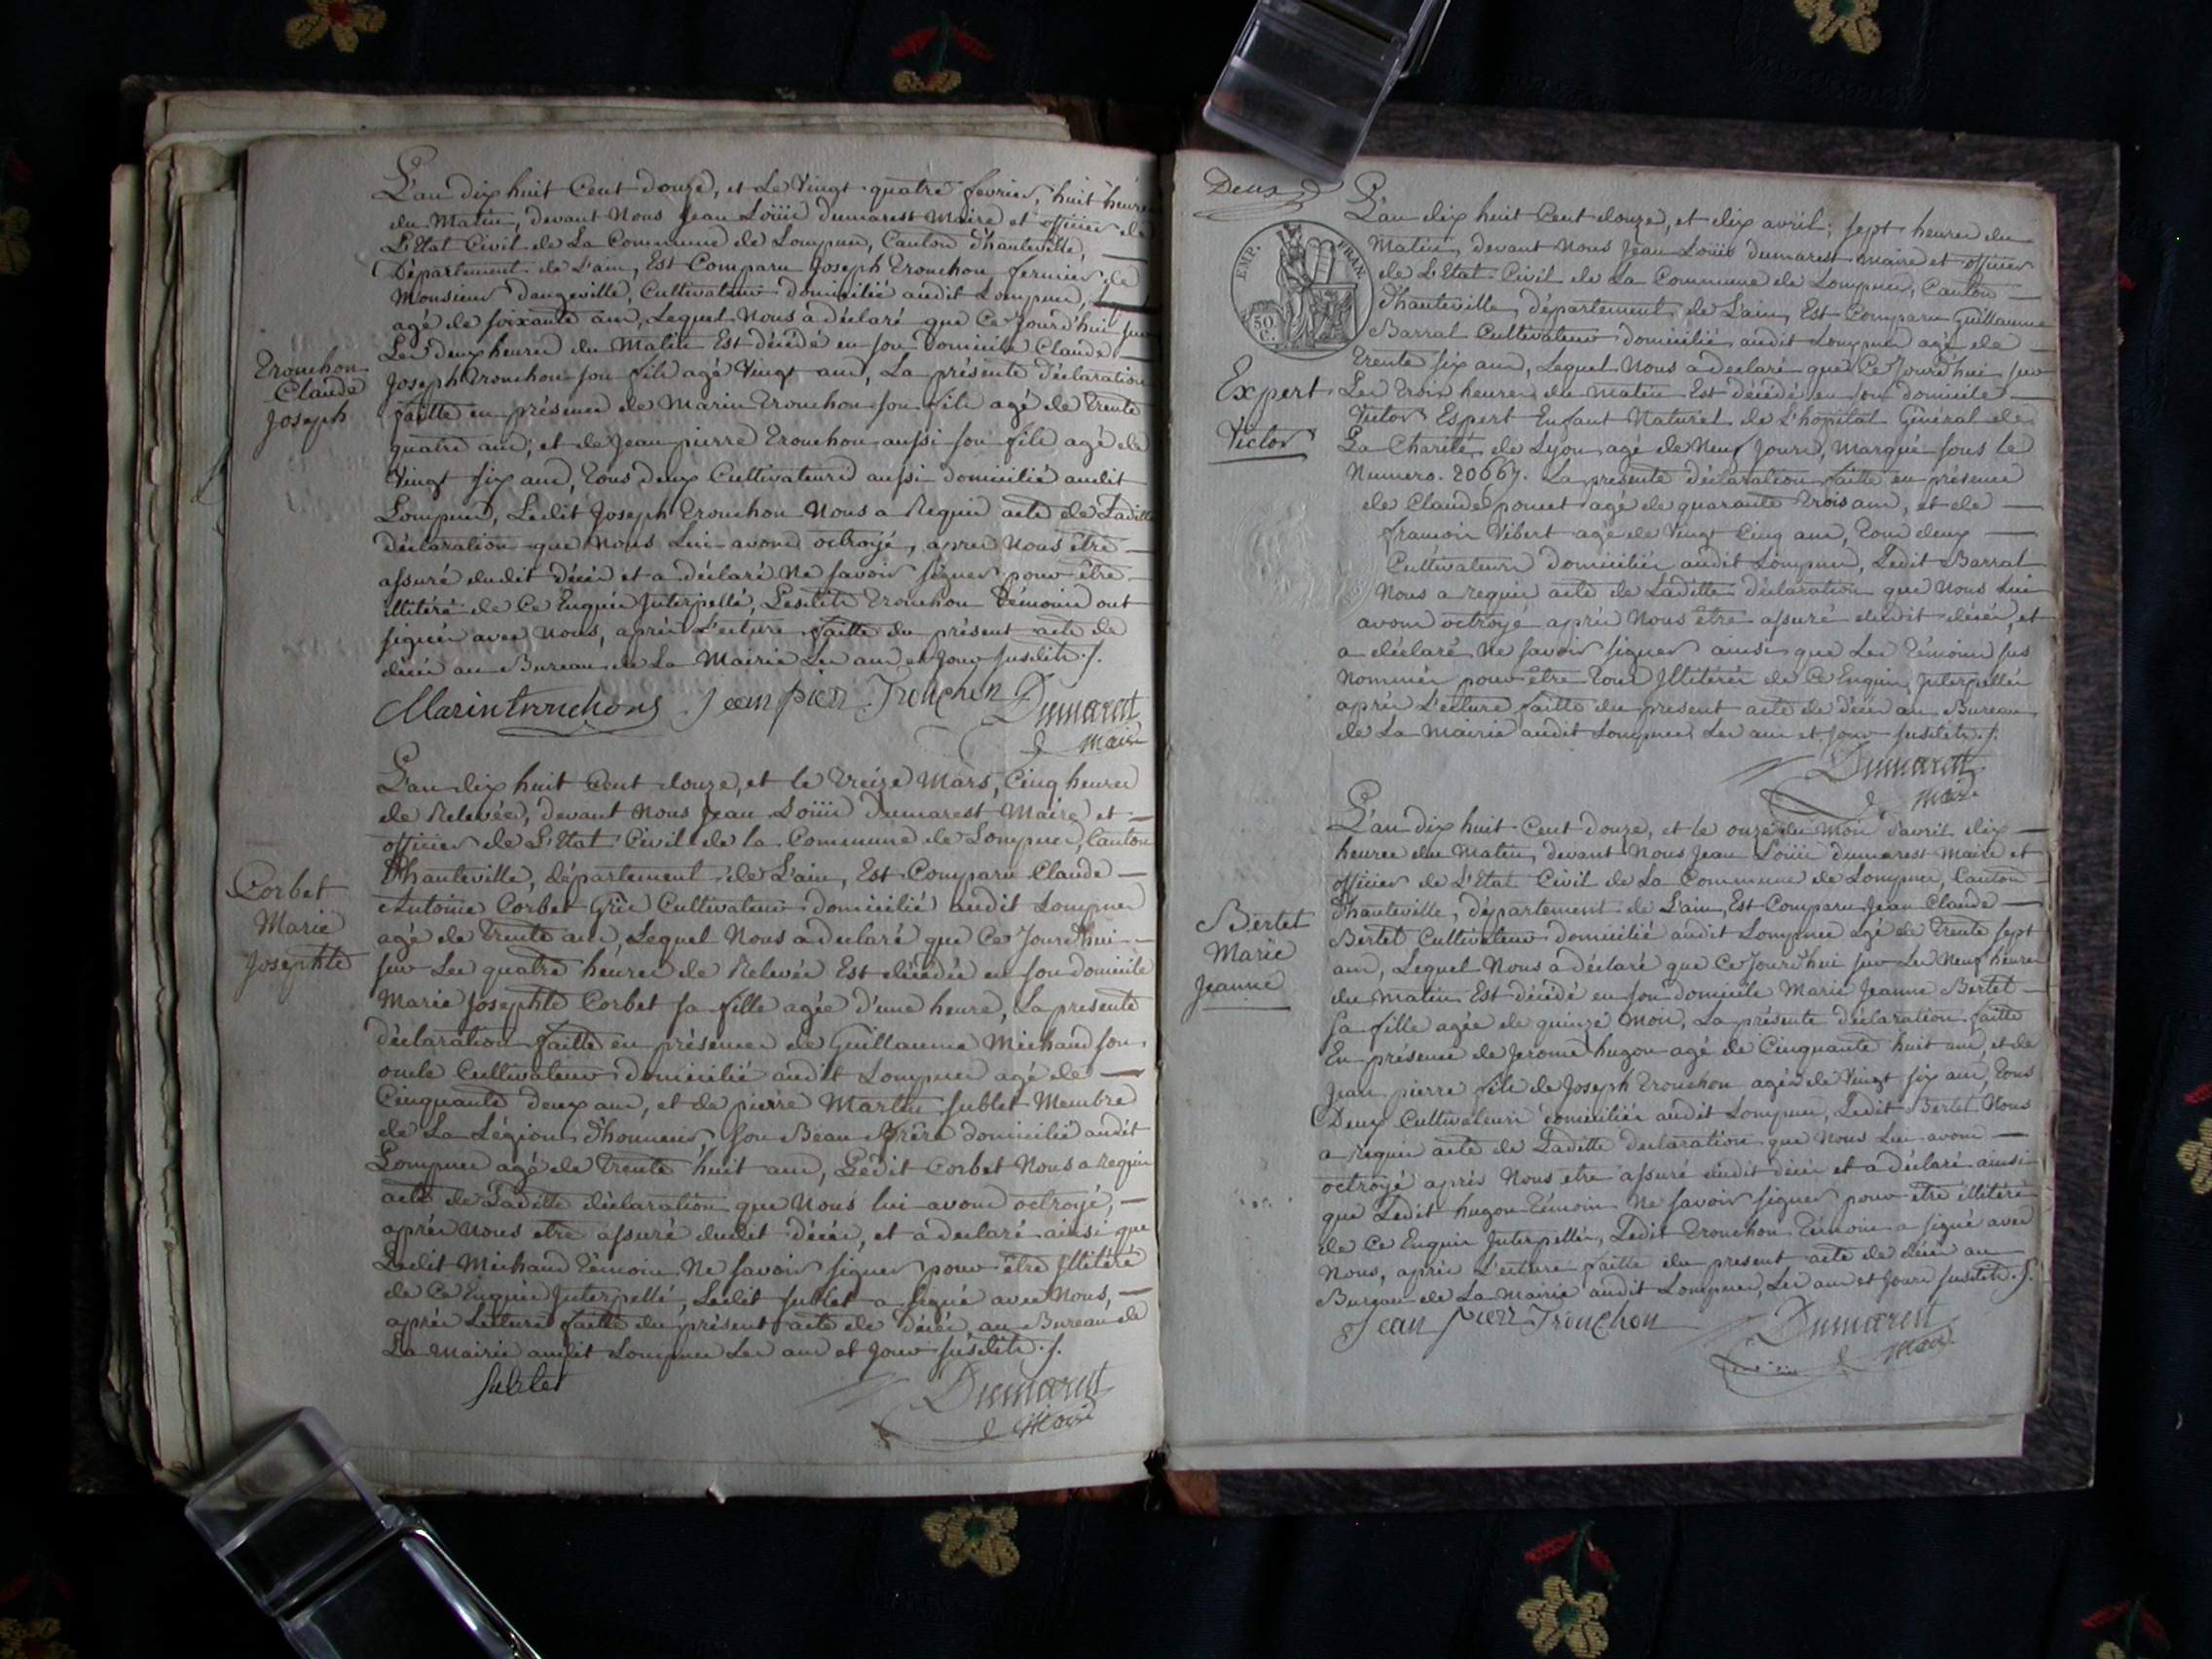 L'an dix huit Cent douze, et Le Vingt quatre fevrier, huit heures
du Matin, devant Nous Jean Loüis dumarest Maire et officier de
L'Etat Civil de La Commune de Lompnes, Canton d'hauteville,
Département de L'ain, Est Comparu Joseph Tronchon fermier de
Monsieur Dangeville, Cultivateur domicilié audit Lompnes,
agé de soixante ans, Lequel Nous a déclaré que Ce Jourd'hui sur
Les deux heures du Matin Est décédé en son Domicile Claude
Joseph Tronchon son fils agé Vingt ans, La présente déclaration
faitte en présence de Marin Tronchon son fils agé de trente
quatre ans, et de Jean pierre Tronchon aussi son fils agé de
Vingt six ans, tous deux Cultivateurs aussi domicilié audit
Lompnes, Ledit Joseph Tronchon Nous a Requis acte de Laditte
déclaration que Nous Lui avons octroyé, apres Nous être
assuré dudit décès et a déclaré Ne savoir signer pour être
illitéré de Ce Enquis Interpellé, Lesdits Tronchon témoins ont
signés avec Nous, après L'ecture faitte du présent acte de
décès au Bureau de La Mairie Les ans et Jour susdits ./.
Marin tronchons Jean pierr Tronchon Dumarest
Maire
Tronchon
Claude
Joseph
L'an dix huit Cent douze, et le treize Mars, Cinq heures
de Relevée, devant Nous Jean Loüis Dumarest Maire et
officier de L'Etat Civil de la Commune de Lompnes, Canton
D'hauteville, département de L'ain, Est Comparu Claude
Antoine Corbet Cultivateur domicilié audit Lompnes
agé de trente ans, Lequel Nous a declaré que Ce Jourd'hui
sur Les quatre heures de Relevée Est décédée en son domicile
Marie Josephte Corbet sa fille agée d'une heure, La presente
déclaration faitte en présence de Guillaume Michaud son
oncle Cultivateur domicilié audit Lompnes agé de
Cinquante deux ans, et de pierre Martin Sublet Membre
de La Légion d'honneur, son Beau frêre domicilié audit
Lompnes agé de trente huit ans, Ledit Corbet Nous a Requis
acte de Laditte déclaration que Nous lui avons octroyé,
après Nous etre assuré dudit décès, et a déclaré ainsi que
Ledit Michaud témoin Ne savoir signer pour être Illitéré
de Ce Enquis Interpellé, Ledit Sublet a signé avec Nous,
après Lecture faitte du présent acte de décès au Bureau de
La Mairie audit Lompnes Les ans et Jour susdits ./.
Sublet Dumarest
Maire
Corbet
Marie
Josephte
Deux
EMP. FRAN.
50 C.
L'an dix huit Cent douze, et dix avril, sept heures du
Matin, devant Nous Jean Loüis dumarest Maire et officier
de L'Etat Civil de La Commune de Lompnes, Canton
d'hauteville, département de Lain, Est Comparu Guillaume
Barral Cultivateur domicilié audit Lompnes agé de
trente six ans, Lequel Nous a declaré que Ce Jourd'hui sur
Les trois heures du matin Est décédé en son domicile
Victor Espert Enfant Naturel de L'hôpital Général de
La Charité de Lyon, agé de Neuf Jours, Marqué sous le
Numero. 20667. La presente déclaration faitte en présence
de Claude poncet agé de quarante trois ans, et de
francois Vibert agé de Vingt Cinq ans, tous deux
Cultivateurs domiciliés audit Lompnes, Ledit Barral
Nous a requis acte de Laditte déclaration que Nous Lui
avons octroyé après Nous être assuré dudit décès, et
a déclaré Ne savoir signer ainsi que Les témoins sus
Nommés pour être tous Illitérés de Ce Enquis, Interpellés
après L'ecture faitte du présent acte de décès au Bureau
de La Mairie audit Lompnes Les ans et Jour susdits ./.
Dumarest
Maire
Expert
Victor
L'an dix huit Cent douze, et le onze du Mois d'avril dix
heures du Matin, devant Nous Jean Loüis dumarest Maire et
officier de L'Etat Civil de La Commune de Lompnes, Canton
d'hauteville, département de L'ain, Est Comparu Jean Claude
Bertet Cultivateur domicilié audit Lompnes agé de trente sept
ans, Lequel Nous a déclaré que Ce Jourd'hui sur Les Neuf heures
du Matin Est décédé en son domicile Marie Jeanne Bertet
sa fille agée de quinze Mois, La présente déclaration faitte
En présence de Jerome hugon agé de Cinquante huit ans, et de
Jean pierre fils de Joseph Tronchon agé de Vingt six ans, tous
Deux Cultivateurs domiciliés audit Lompnes, Ledit Bertet Nous
a Requis acte de Laditte declaration que Nous Lui avons
octroyé après Nous etre assuré dudit décès et a déclaré ainsi
que Ledit hugon témoin Ne savoir signer pour être illitéré
de Ce Enquis Interpellés, Ledit Tronchon témoin a signé avec
Nous, après L'ecture faitte du present acte de décès au
Bureau de La Mairie audit Lompnes, Les ans et Jours susdits ./.
Jean pierr Tronchon Dumarest
Maire
Bertet
Marie
Jeanne